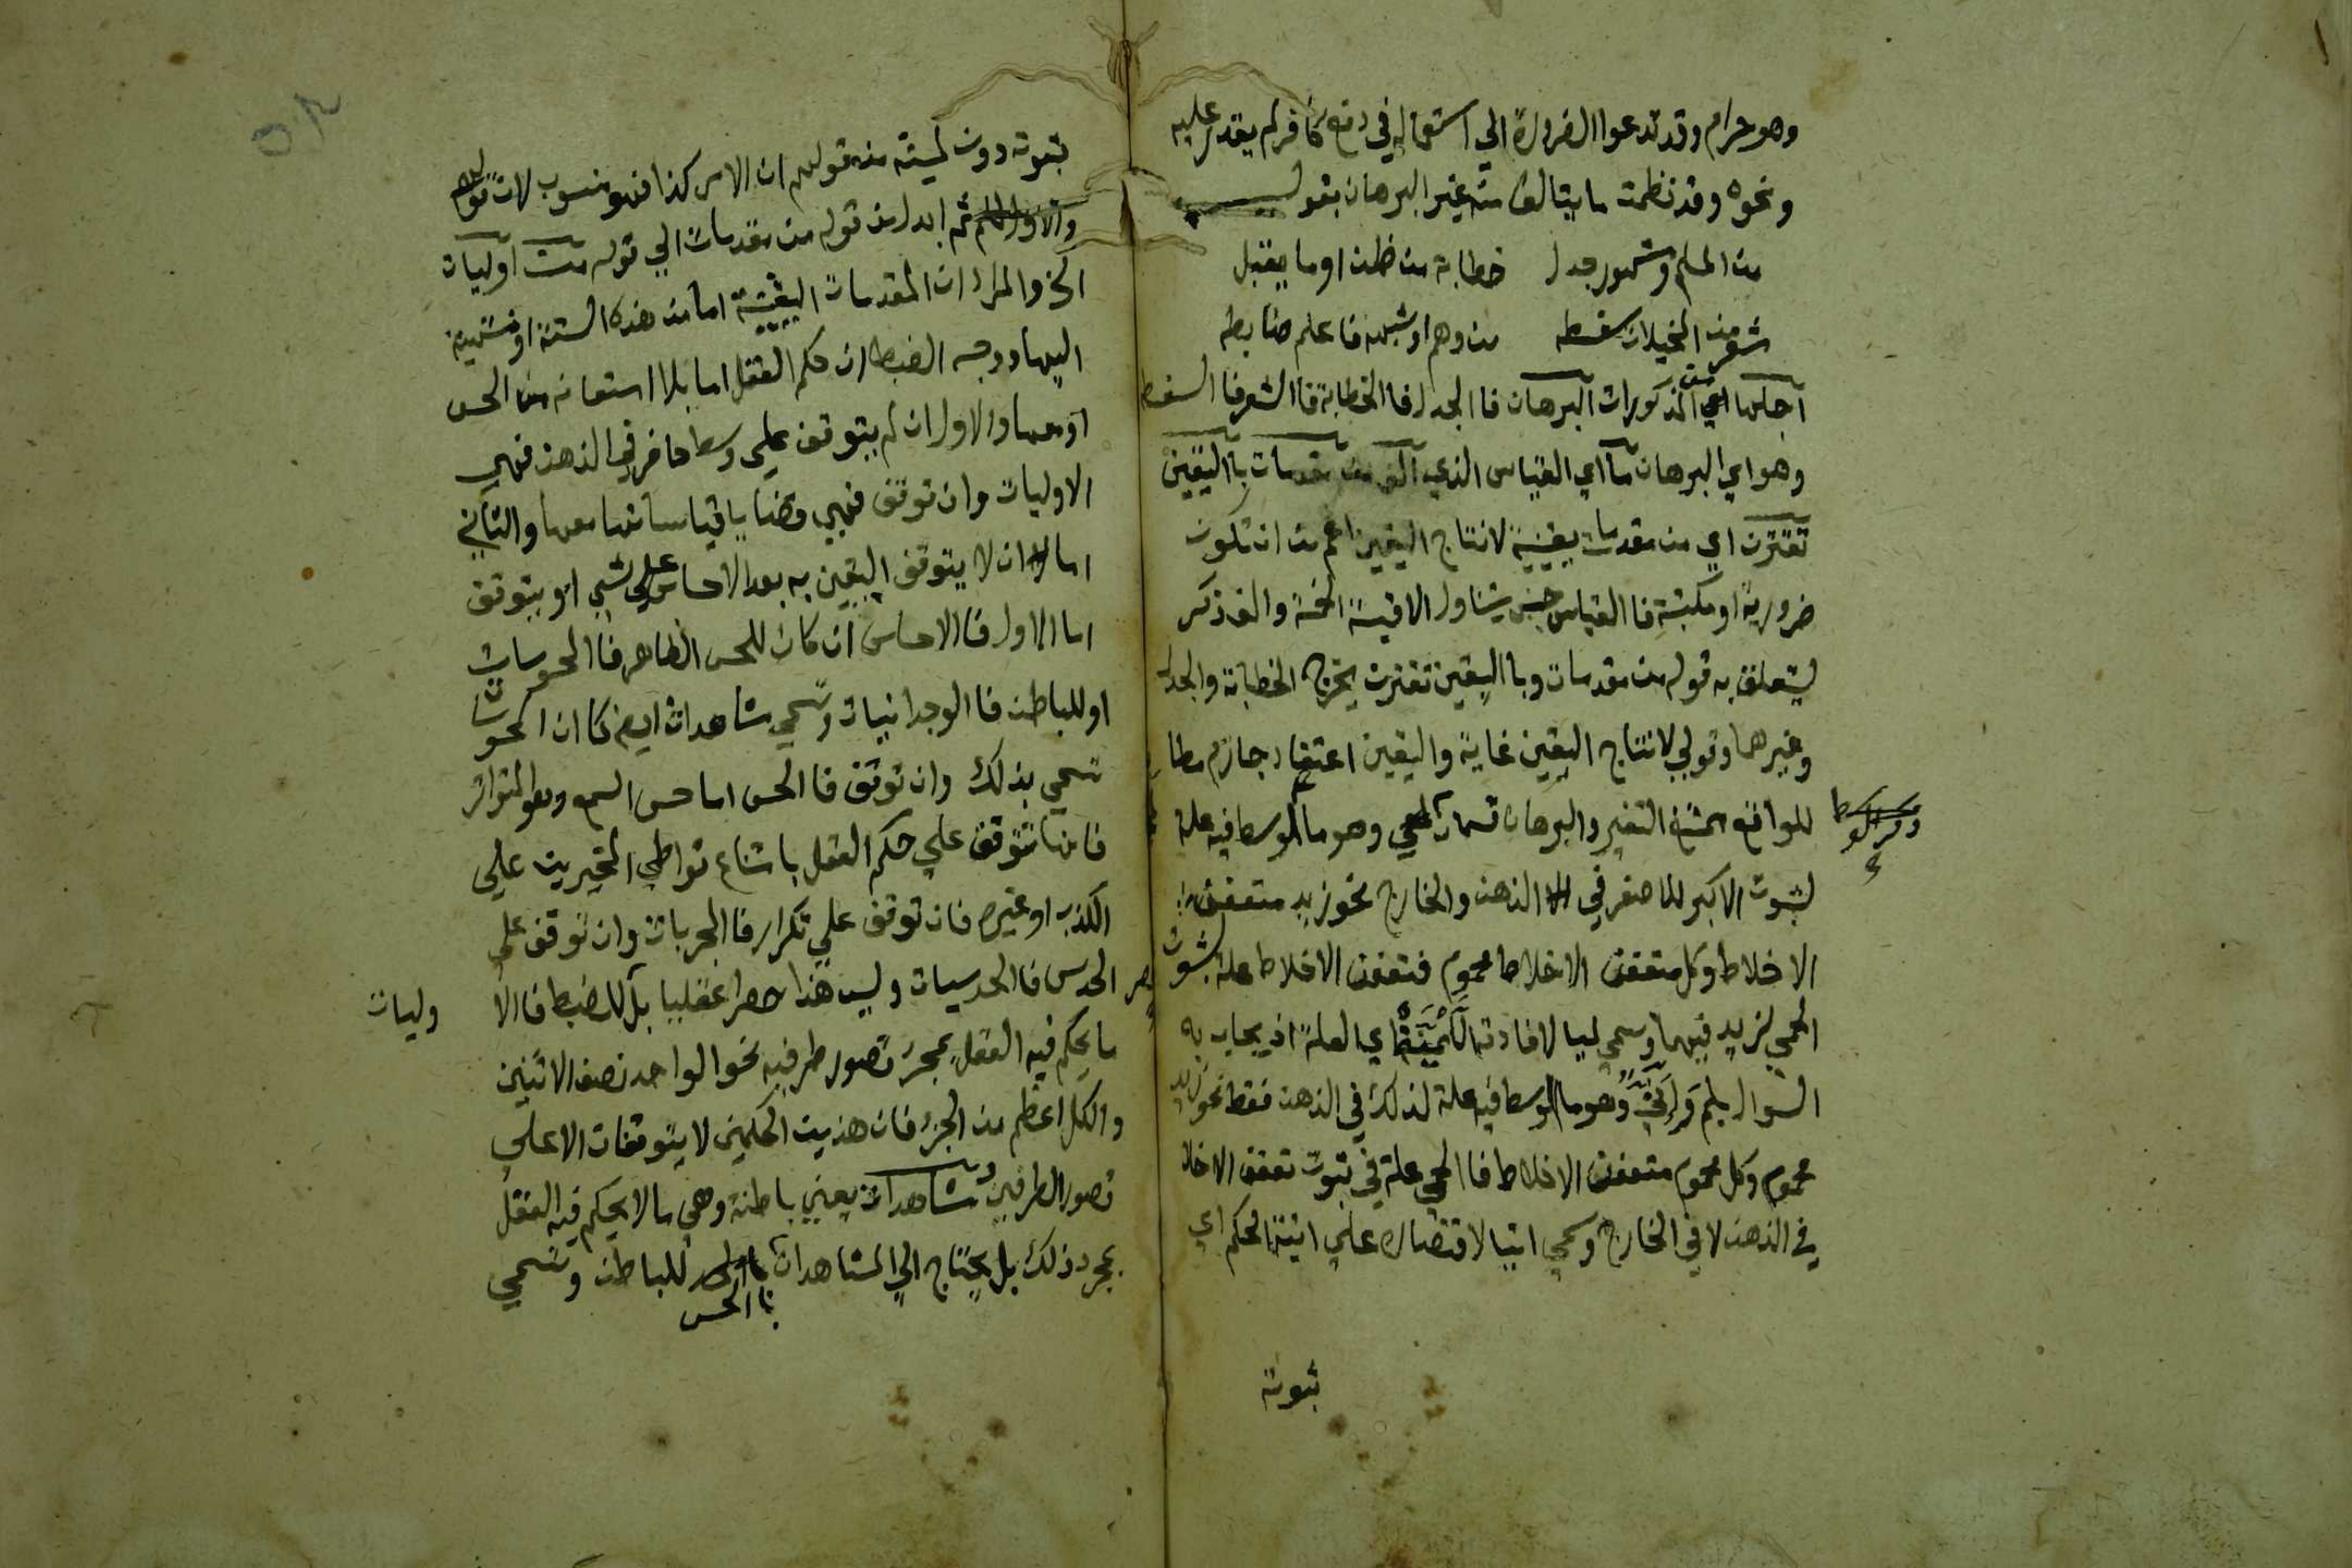 وهو حرام وقد تدعوا الضرورة الي استعماله في دفع كافر لم يقدر عليه
ونحوه وقد نظمت ما يتالف من غير البرهان بقولي
من المسلم ومشهور جدل خطابة من ظن او ما يقبل
شعر من المخيلات سفسطه من وهم او شبهه فاعلم ضابطه
اجلها اي المذكورات البرهان فا الجدل فا الخطابة فا الشعر فا السفسط
وهو اي البرهان ما اي القياس الذي الف من مقدمات با اليقين
تقترن اي من مقدمات يقينية لانتاج اليقين اعم من ان تكون
ضرورية او مكتسبة فا القياس جنس يتناول الاقيسة الخمسة والف ذكر
ليتعلق به قوله من مقدمات وبا اليقين تقترن يخرج الخطابة والجدل
وغيرهما وقولي لانتاج اليقين غاية واليقين اعتقاد جازم مطا
للواقع ممتنع التغير والبرهان قسمان لمي وهو ما الوسط فيه علة
لثبوت الاكبر للاصغر في الذهن والخارج نحو زيد متعفن
الاخلاط وكل متعفن الاخلاط محموم فتعفن الاخلاط علة لثبوت
الحمي لزيد فيهما وسمي لميا لافادته اللمية اي العلة اذ يجاب به
السوال بلم واني وهو ما الوسط فيه علة لذلك في الذهن فقط نحو زيد
محموم وكل محموم متعفن الاخلاط فا الحمي علة في ثبوت تعفن الاخلا
في الذهن لا في الخارج وسمي انيا لاقتصاره علي انية الحكم اي
ثبوته
ثبوته دون لميته من قولهم ان الامر كذا فهو منسوب لان
ثم ابدل من قوله من مقدمات الي قوله من اوليات
الخ والمراد ان المقدمات اليقينية اما من هذه الستة او منتهية
اليها ووجه الضبط ان حكم العقل اما بلا استعانة من الحس
او معها والاول ان لم يتوقف علي وسط حاضر في الذهن فهي
الاوليات وان توقف فهي قضايا قياساتها معها والثاني
اما ان لا يتوقف اليقين به بعد الاحساس علي شيي او يتوقف
اما الاول فا الاحساس ان كان للحس الظاهر فا المحوسات
او للباطن فا الوجدانيات وتسمي مشاهدات ايض كما ان المحوسات
تسمي بذلك وان توقف فا الحس اما حس السمع وهو المتواتر
فانها تتوقف علي حكم العقل بامتناع تواطي المخبرين علي
الكذب او غيره فان توقف علي تكرار فا المجربات وان توقف علي
الحدس فا الحدسيات وليس هذا حصرا عقليا بل للضبط فا الا وليات
ما يحكم فيه العقل بمجرد تصور طرفيه نحو الواحد نصف الاثنين
والكل اعظم من الجزء فان هذين الحكمين لا يتوقفان الا علي
تصور الطرفين ومشاهدات يعني باطنة وهي ما لا يحكم فيه العقل
بمجرد ذلك بل يحتاج الي المشاهدات للباطن وتسمي
با الحس